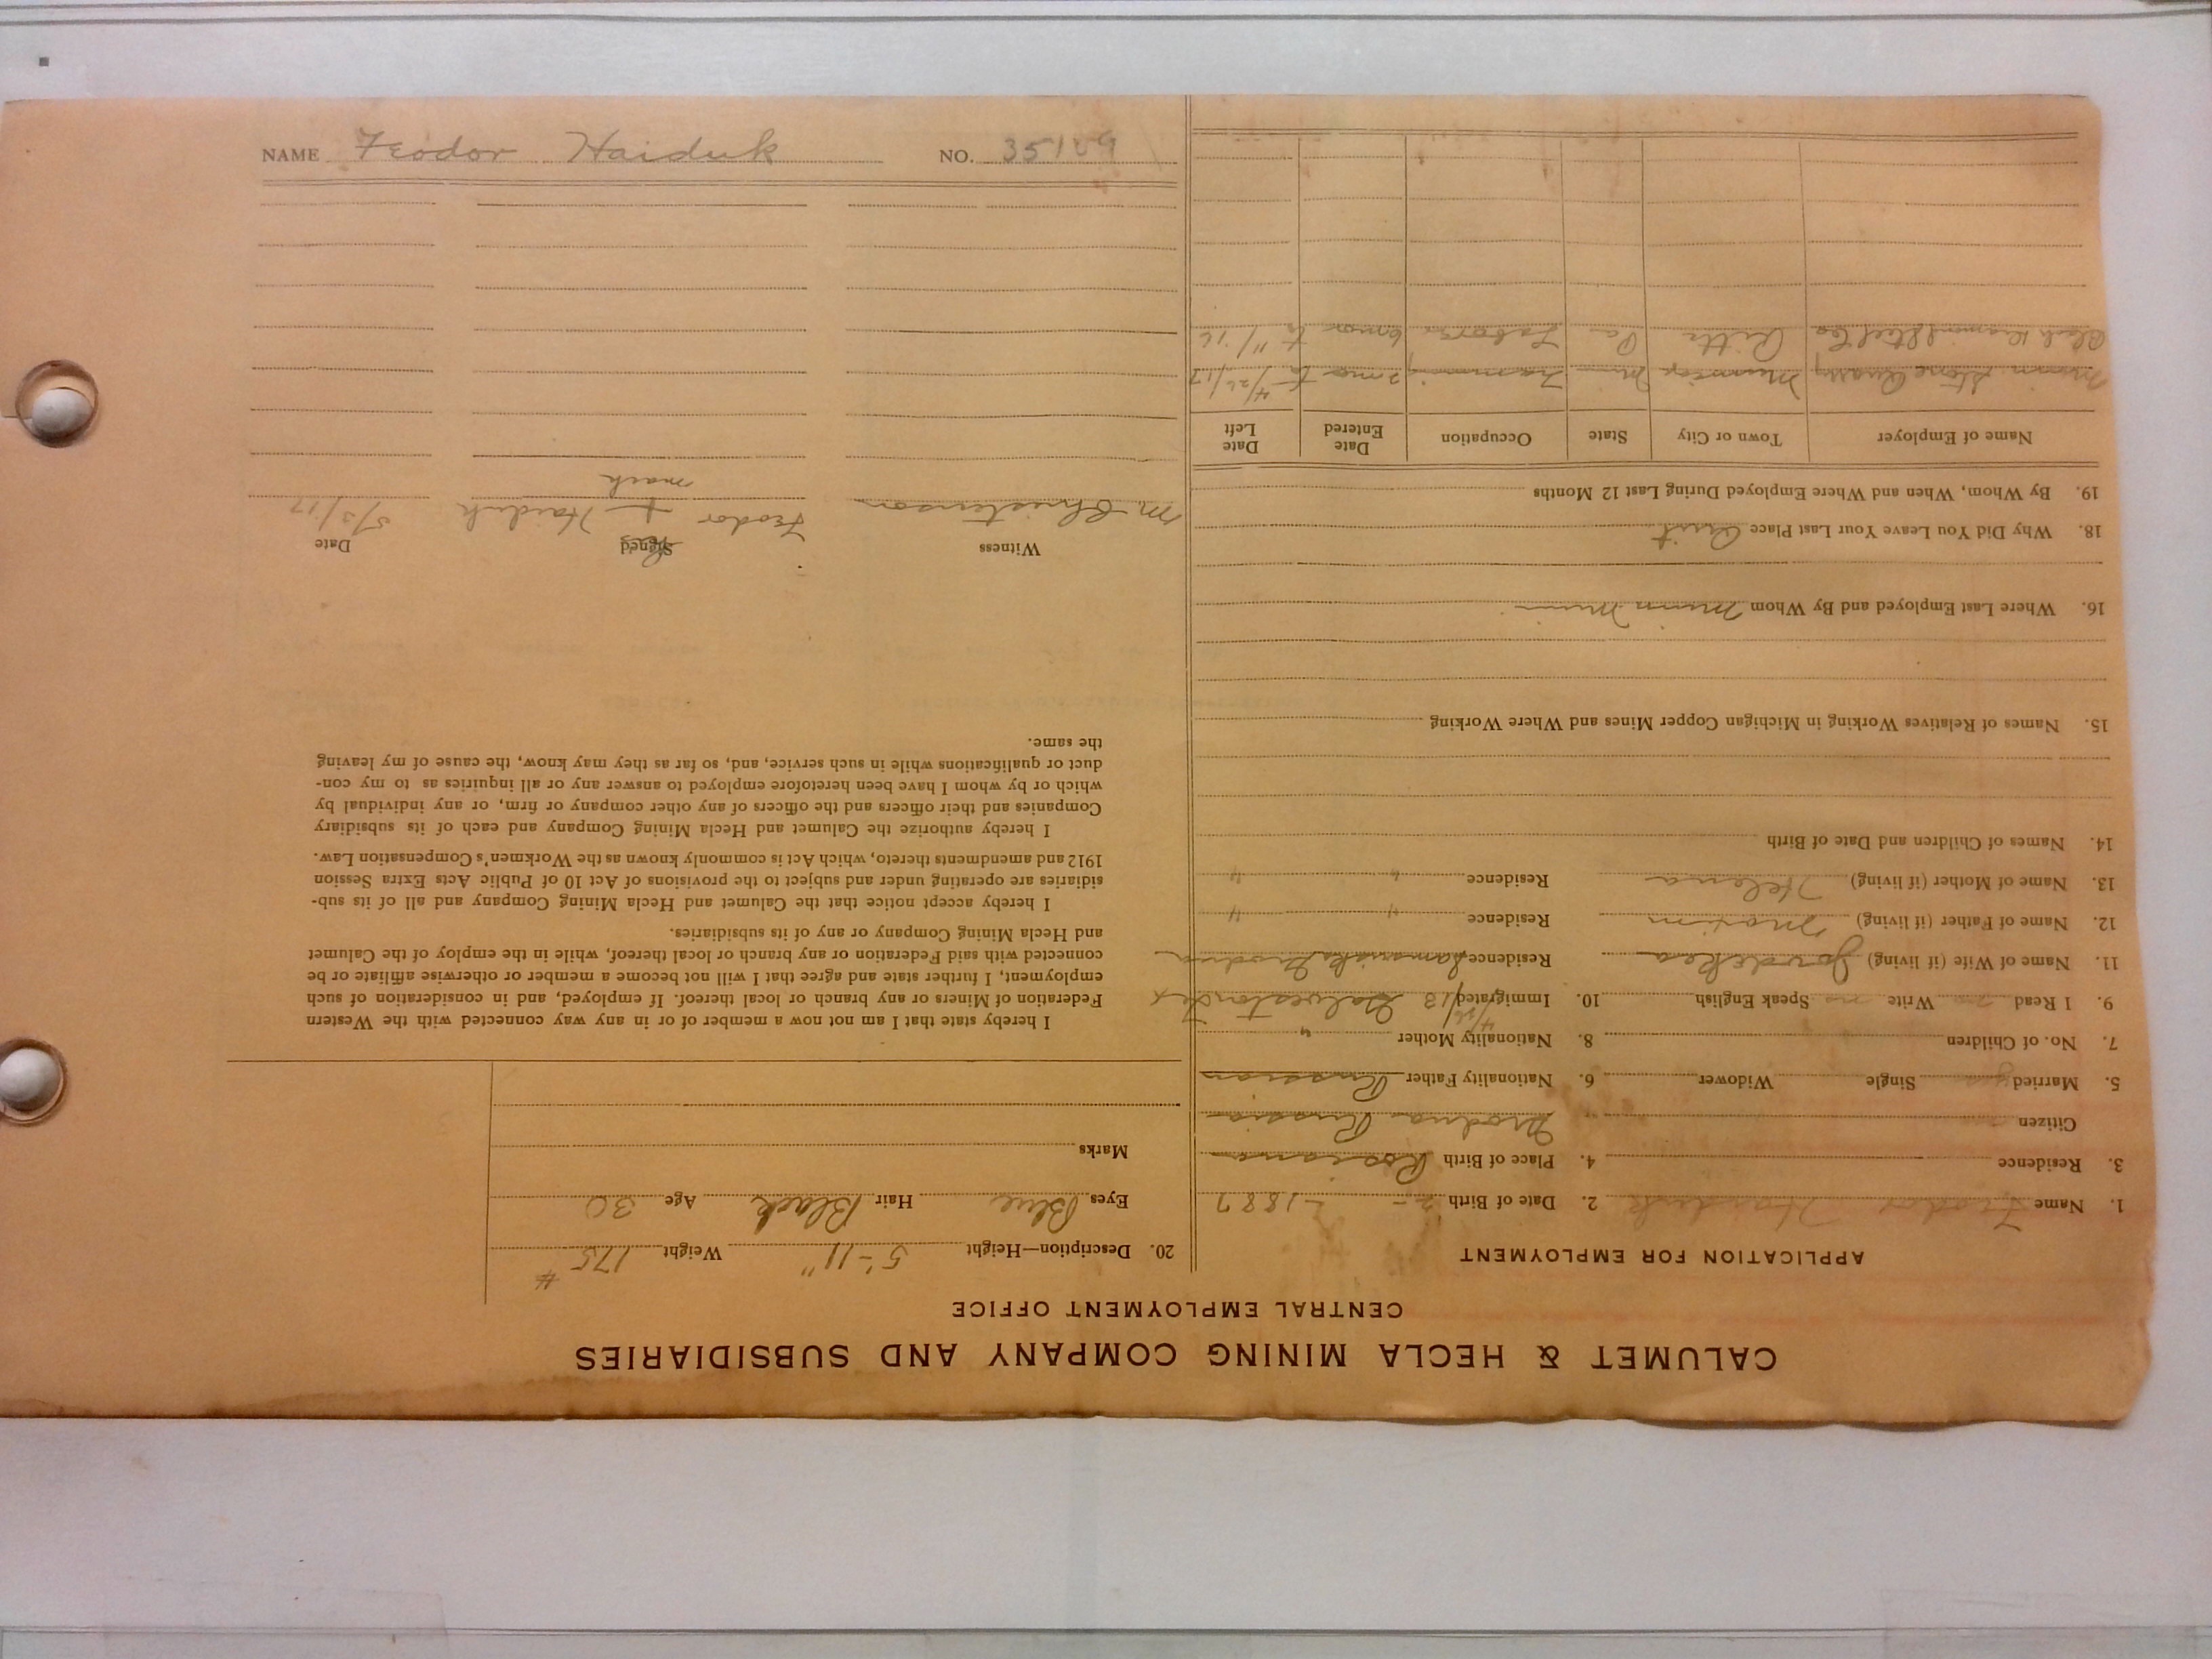 NAME Feodor Haiduk NO. 35109
CALUMET & HECLA MINING COMPANY AND SUBSIDIARIES
CENTRAL EMPLOYMENT OFFICE
APPLICATION FOR EMPLOYMENT
1. Name Feodor Haiduk 2. Date of Birth 1887
3. Residence 4. Place of Birth
Citizen Grodna Russia
5. Married yes Single Widower 6. Nationality Father Russian
7. No. of Children 8. Nationality Mother "
9. I Read no Write no Speak English 10. Immigrated 4/26/13 Galveston Tex
11. Name of Wife (if living) Residence Grodna
12. Name of Father (if living) Maxim Residence " "
13. Name of Mother (if living) Helena Residence " "
14. Names of Children and Date of Birth
15. Names of Relatives Working in Michigan Copper Mines and Where Working
16. Where Last Employed and By Whom
18. Why Did You Leave Your Last Place Quit
19. By Whom, When and Where Employed During Last 12 Months
Name of Employer Town or City State Occupation Date Entered Date Left
Stone Quarry 2 mo to 4/26/17
Steel Co Pitts Pa Labor 6 mos to 11/16
20. Description—Height 5'-11" Weight 175 #
Eyes Blue Hair Black Age 30
Marks
I hereby state that I am not now a member of or in any way connected with the Western
Federation of Miners or any branch or local thereof. If employed, and in consideration of such
employment, I further state and agree that I will not become a member or otherwise affiliate or be
connected with said Federation or any branch or local thereof, while in the employ of the Calumet
and Hecla Mining Company or any of its subsidiaries.
I hereby accept notice that the Calumet and Hecla Mining Company and all of its sub-
sidiaries are operating under and subject to the provisions of Act 10 of Public Acts Extra Session
1912 and amendments thereto, which Act is commonly known as the Workmen's Compensation Law.
I hereby authorize the Calumet and Hecla Mining Company and each of its subsidiary
Companies and their officers and the officers of any other company or firm, or any individual by
which or by whom I have been heretofore employed to answer any or all inquiries as to my con-
duct or qualifications while in such service, and, so far as they may know, the cause of my leaving
the same.
Witness Signed Date
his
M. Christenson Feodor + Haiduk 5/3/17
mark